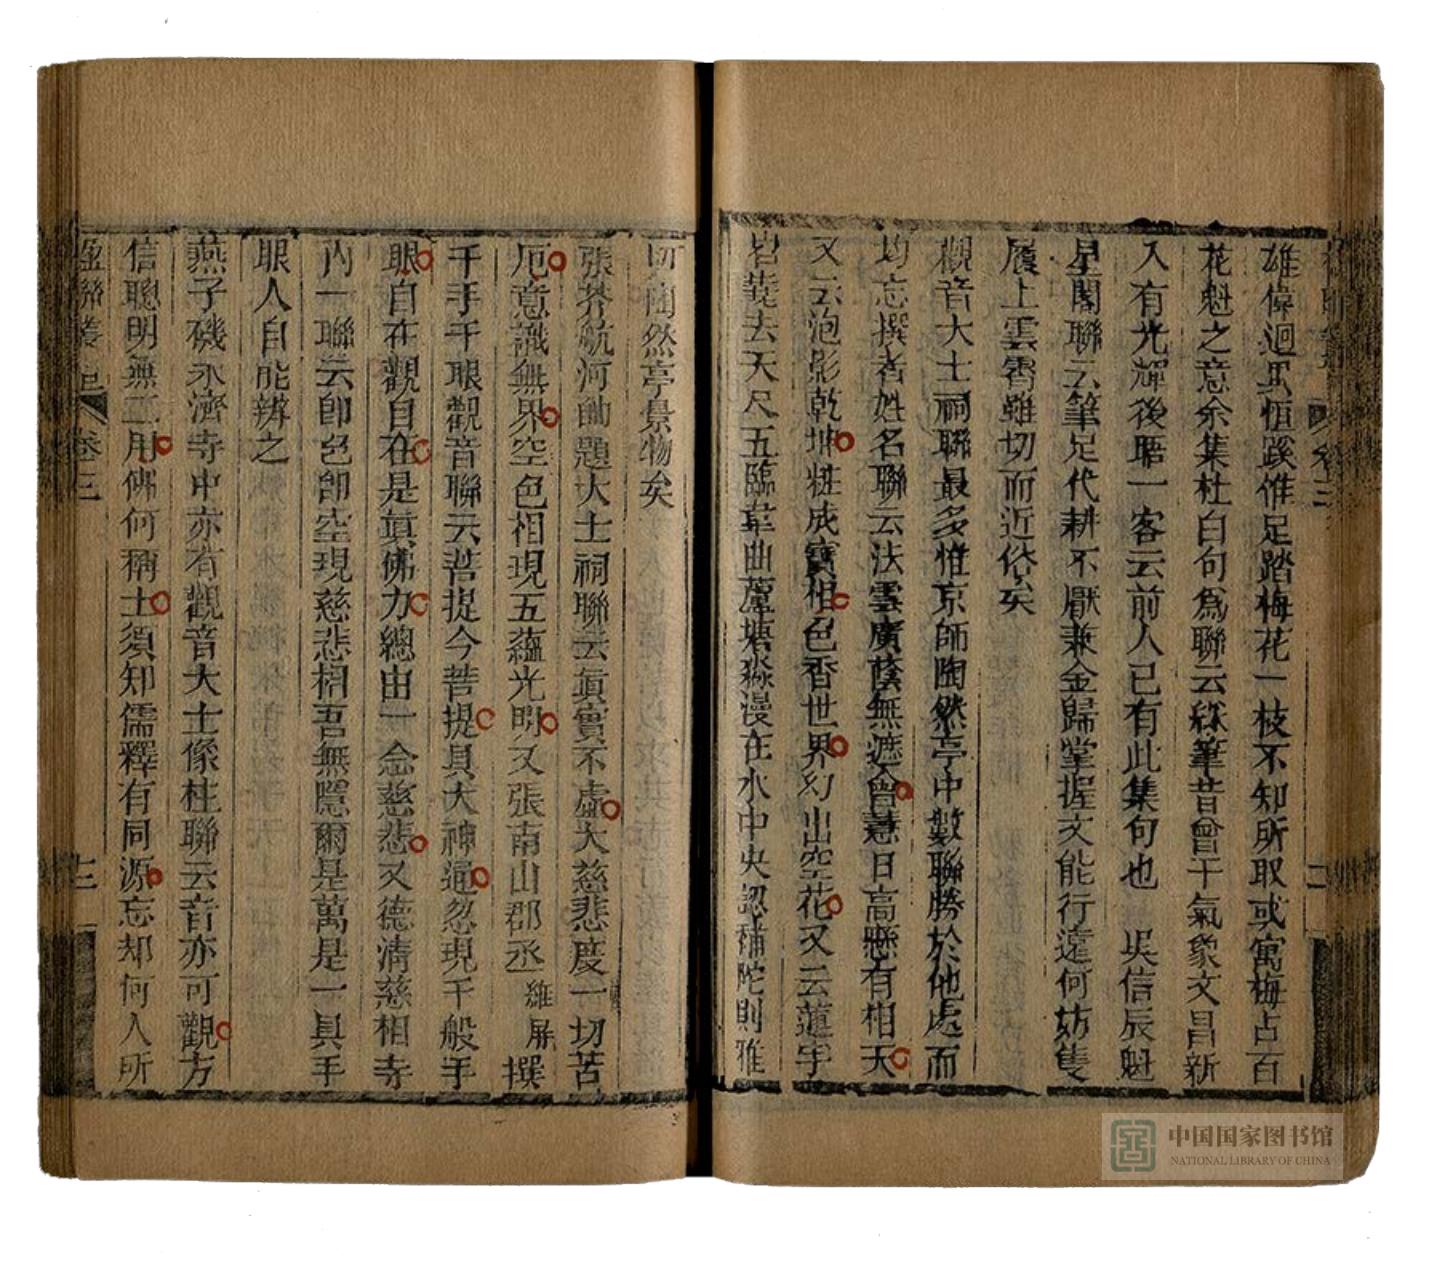 雄偉迴異恒蹊惟足踏梅花一枝不知所取或寓梅占百
花魁之意余集杜白句爲聯云綵筆昔曾干氣象文昌新
入有光輝後晤一客云前人已有此集句也 吳信辰魁
星閣聯云筆足代耕不厭兼金歸掌握文能行遠何妨隻
履上雲霄雖切而近俗矣
觀音大士祠聯最多惟京師陶然亭中數聯勝於他處而
均忘撰者姓名聯云法雲廣蔭無遮大會慧日高懸有相天
又云泡影乾坤粧成寶相色香世界幻出空花又云蓮宇
岧嶤去天尺五臨韋曲蘆塘淼漫在水中央認補陀則雅
切陶然亭景物矣
張芥航河帥題大士祠聯云眞實不虛大慈悲度一切苦
厄意識無界空色相現五蘊光明又張南山郡丞維屏撰
千手千眼觀音聯云菩提今菩提具大神通忽現千般手
眼自在觀自在是眞佛力總由一念慈悲又德清慈相寺
內一聯云卽色卽空現慈悲相吾無隱爾是萬是一具手
眼人自能辨之
燕子磯永濟寺中亦有觀音大士像柱聯云音亦可觀方
信聰明無二用佛何稱士須知儒釋有同源忘却何人所
楹聯叢話 卷三 十二
中国国家图书馆
NATIONAL LIBRARY OF CHINA